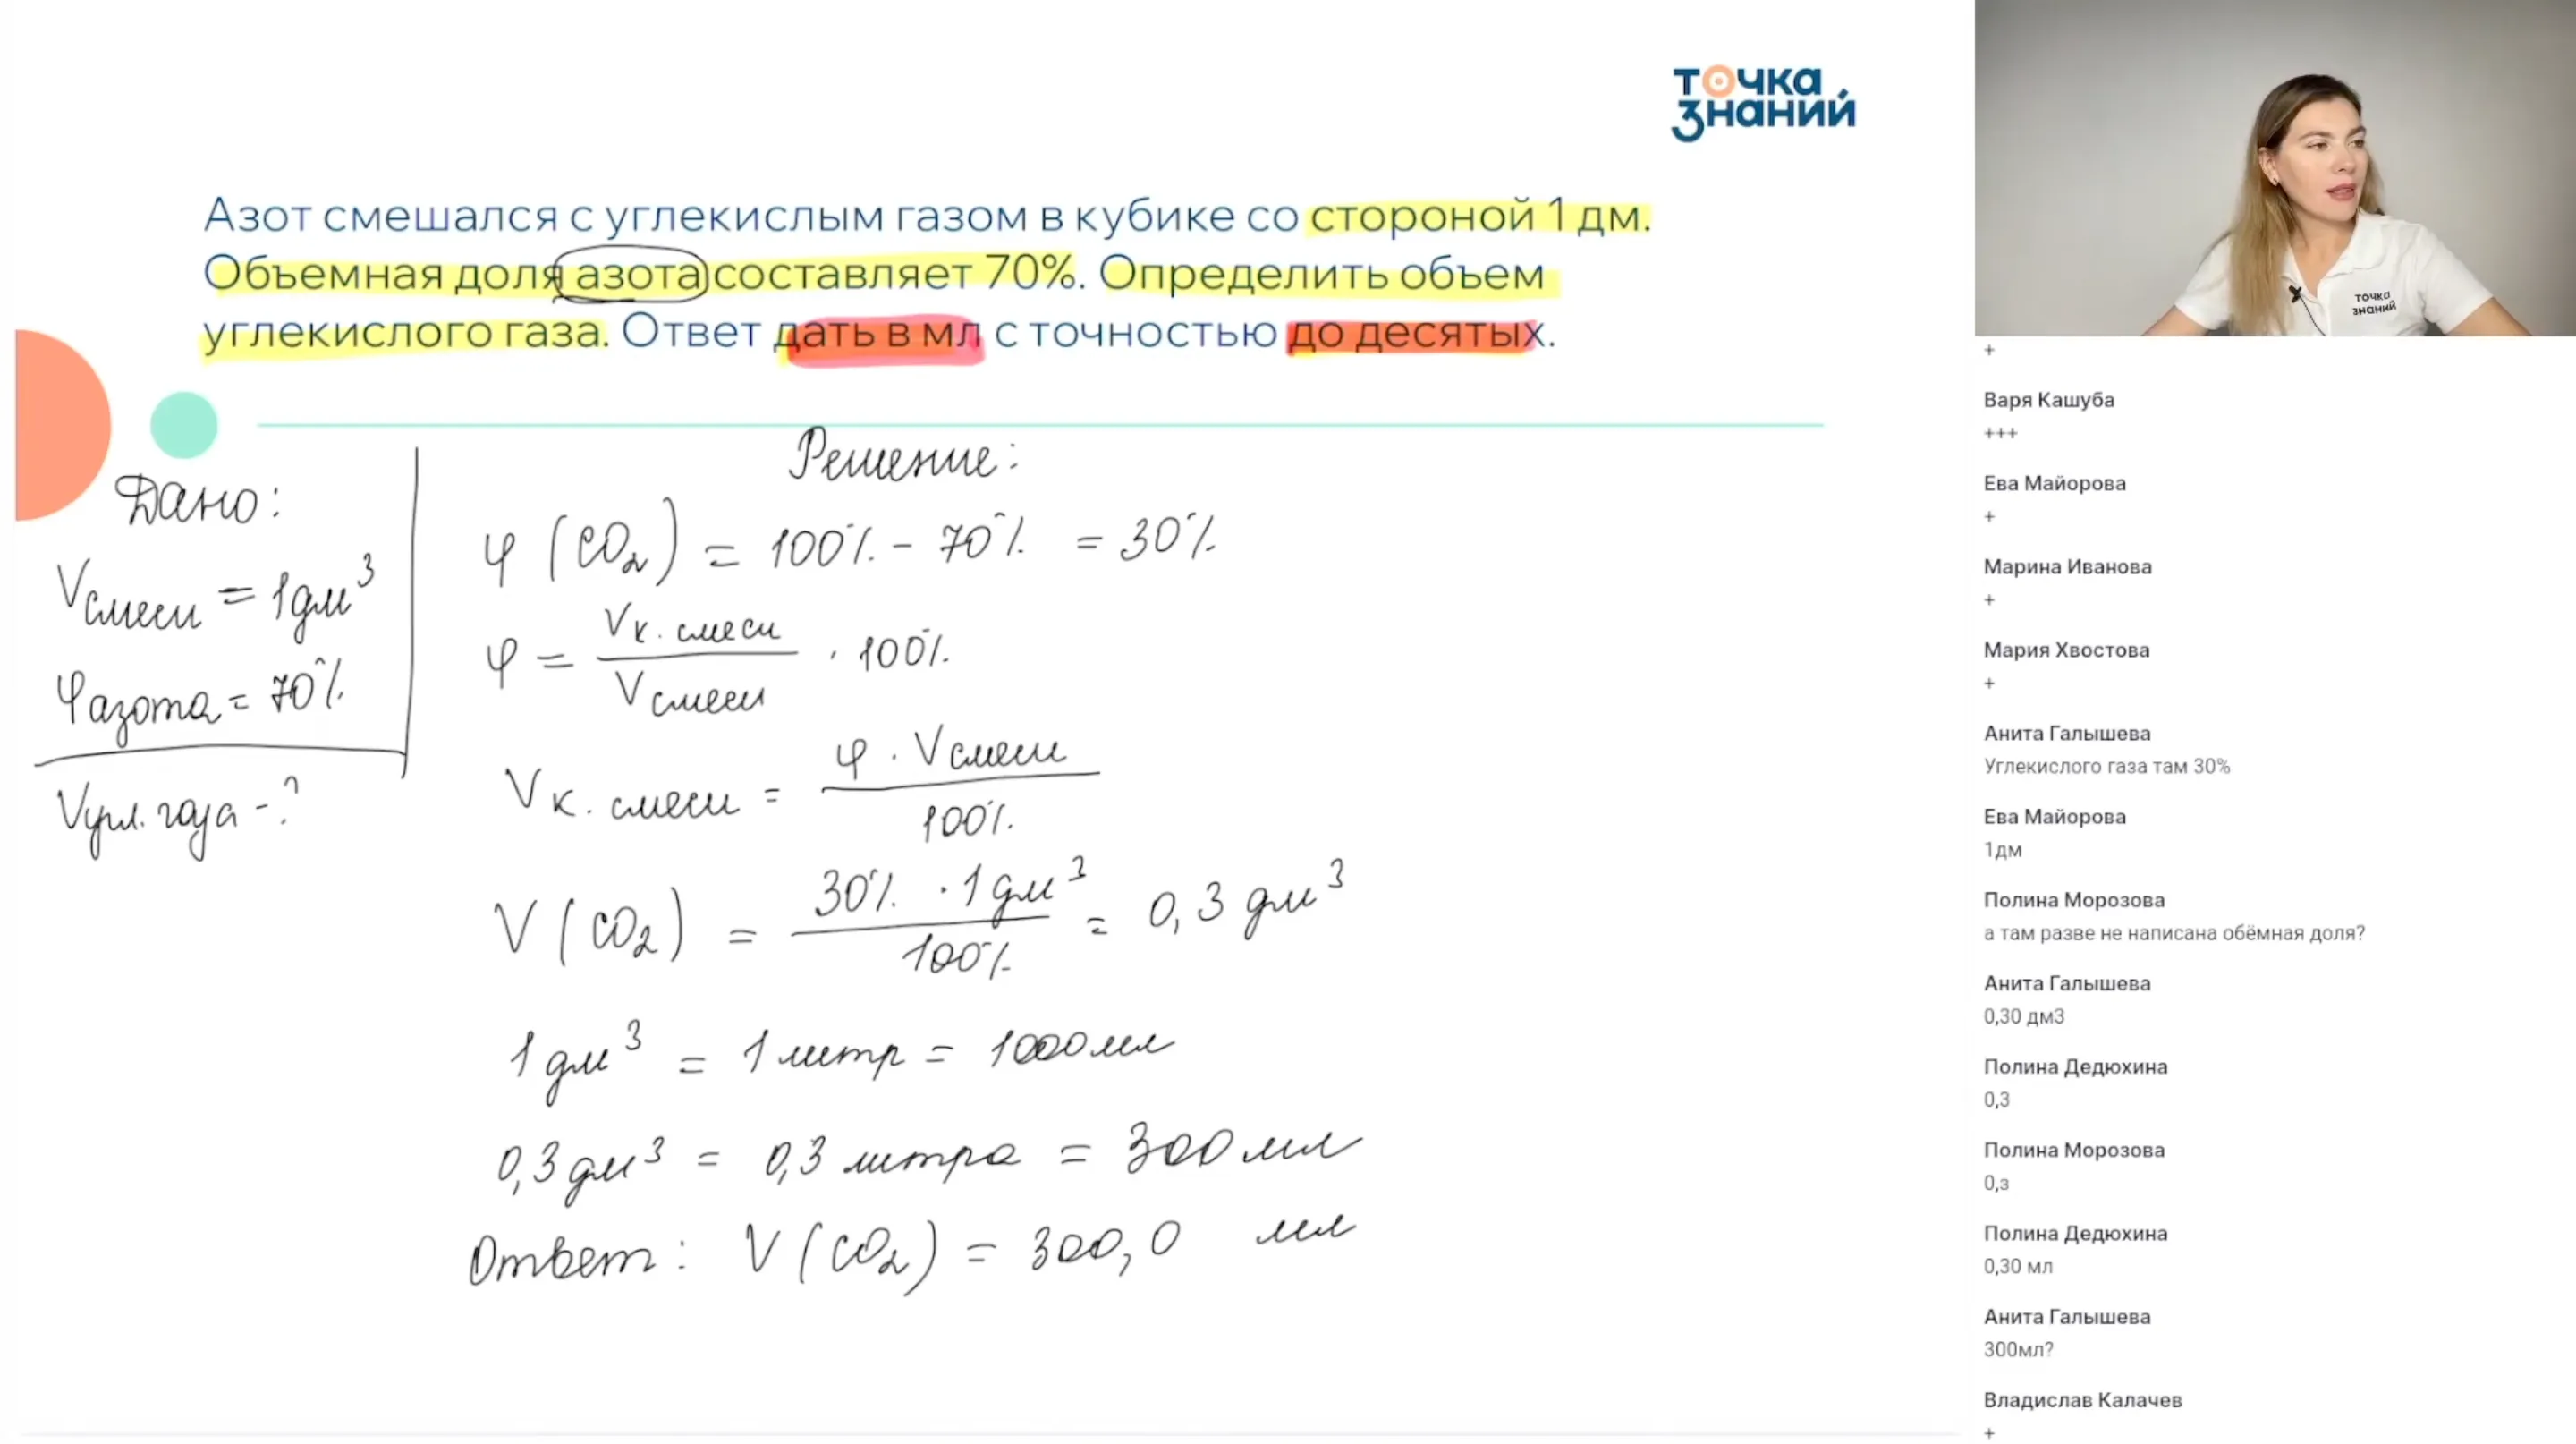 точка
знаний
Азот смешался с углекислым газом в кубике со стороной 1 дм.
Объемная доля азота составляет 70%. Определить объем
углекислого газа. Ответ дать в мл с точностью до десятых.
Дано:
Vсмеси = 1дм³
φазота = 70%
Vугл. газа - ?
Решение:
φ (CO₂) = 100% - 70% = 30%
φ = Vк. смеси / Vсмеси · 100%
Vк. смеси = φ · Vсмеси / 100%
V (CO₂) = 30% · 1 дм³ / 100% = 0,3 дм³
1 дм³ = 1 литр = 1000 мл
0,3 дм³ = 0,3 литра = 300 мл
Ответ: V (CO₂) = 300,0 мл
точка
знаний
+
Варя Кашуба
+++
Ева Майорова
+
Марина Иванова
+
Мария Хвостова
+
Анита Галышева
Углекислого газа там 30%
Ева Майорова
1дм
Полина Морозова
а там разве не написана обёмная доля?
Анита Галышева
0,30 дм3
Полина Дедюхина
0,3
Полина Морозова
0,з
Полина Дедюхина
0,30 мл
Анита Галышева
300мл?
Владислав Калачев
+